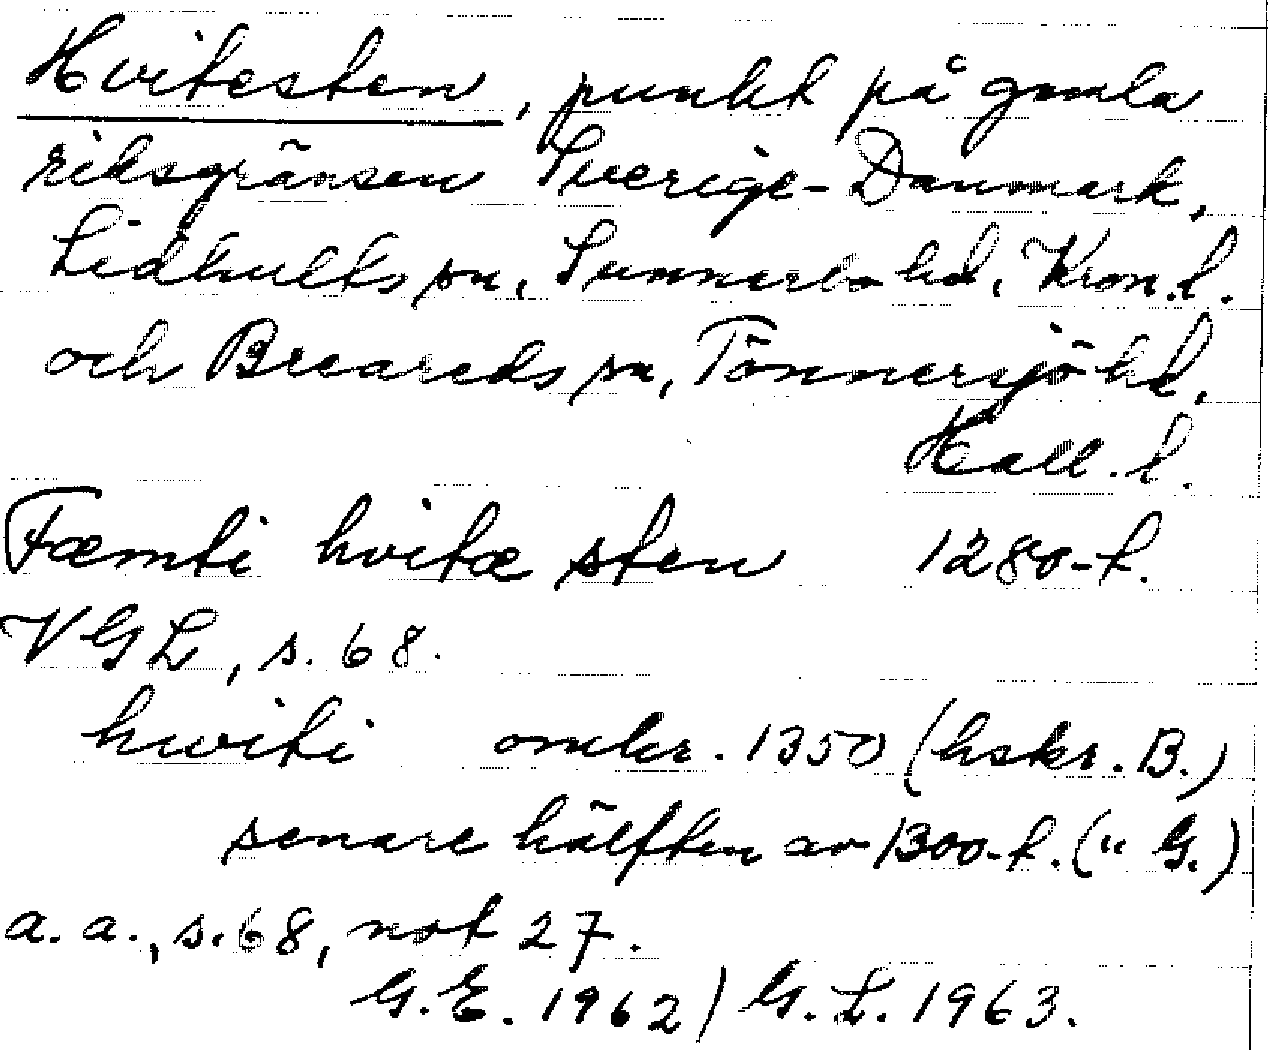 Hvitesten, punkt på gamla
riksgränsen Sverige-Danmark,
Lidhults sn, Sunnerbo hd, Kron. l.
och Breareds sn, Tönnersjö hd,
Hall. l.
Fæmti hvitæ sten 1280-t.
VGL, s. 68.
hwiti omkr. 1350 (hskr. B.)
senare hälften av 1300-t. (" G.)
a. a., s. 68, not 27.
G. E. 1962) G. L. 1963.